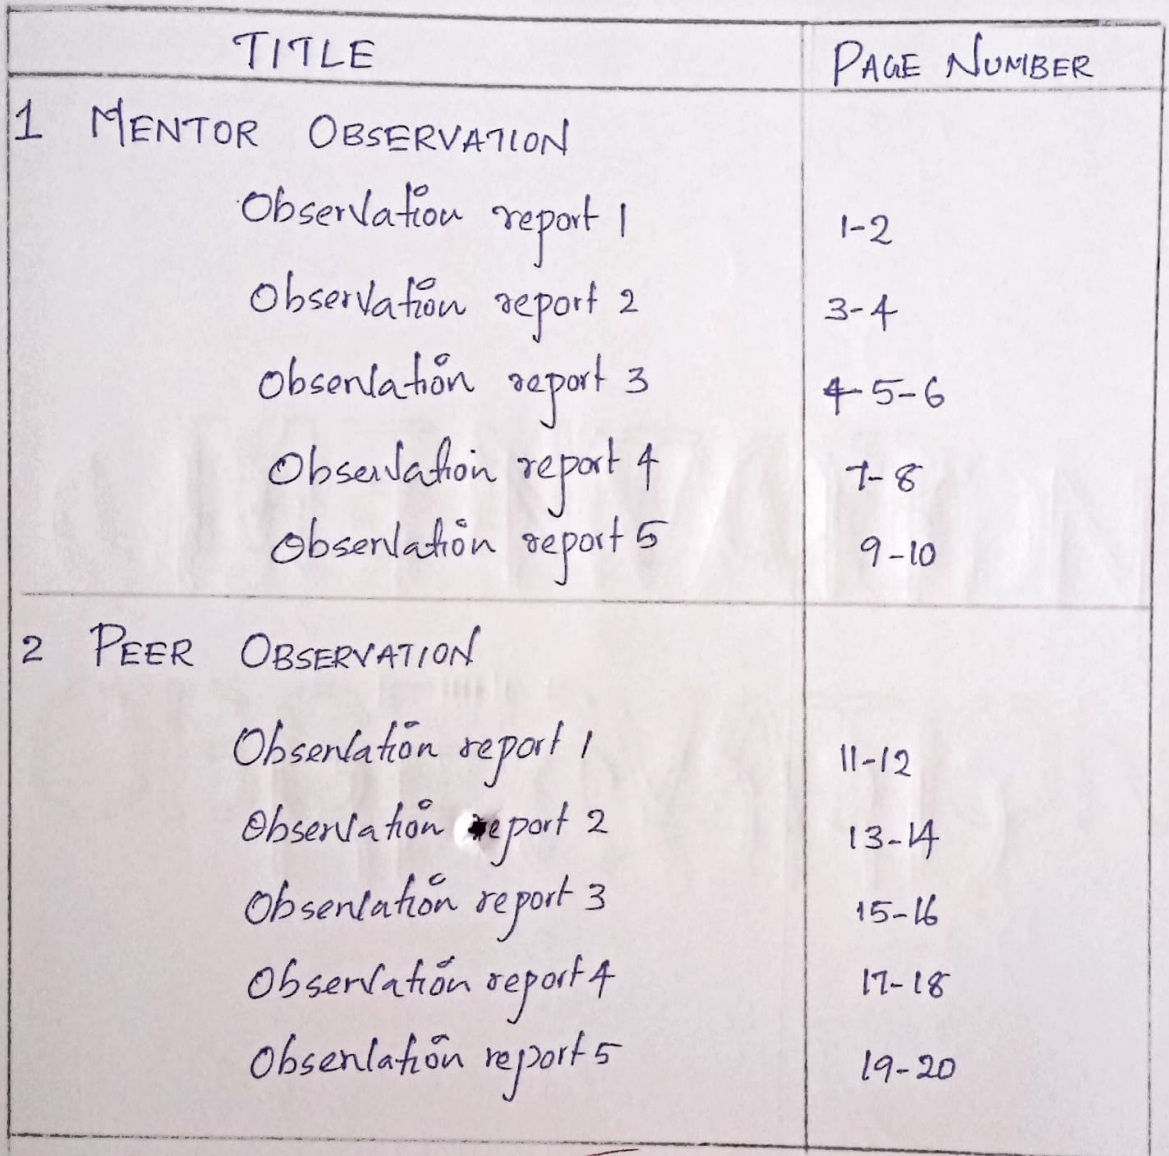 TITLE PAGE NUMBER
1 MENTOR OBSERVATION
Observation report 1 1-2
Observation report 2 3-4
Observation report 3 4-5-6
Observation report 4 7-8
Observation report 5 9-10
2 PEER OBSERVATION
Observation report 1 11-12
Observation report 2 13-14
Observation report 3 15-16
Observation report 4 17-18
Observation report 5 19-20